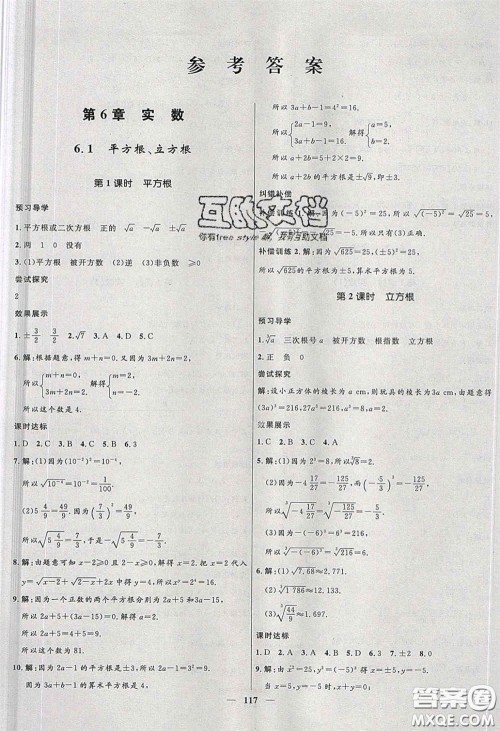 参考答案
第6章 实数
6.1 平方根、立方根
第1课时 平方根
预习导学
1.平方根或二次方根 正的 −√a ±√a
2.两 1 0 没有
3.(1)平方根 被开方数 (2)逆 (3)非负数 ≥0
尝试探究
2
效果展示
1.±3/2 3/2 2.√7 3.A 4.D 5.C
6.解:根据题意,得m+n=0,且3m+2n=4.
所以{m+n=0, 3m+2n=4. 解得{m=4, n=-4.
所以这个数是4.
课时达标
1.D 2.C 3.B 4.D 5.C 6.A
7.解:(1)因为(10⁻²)²=10⁻⁴,
所以√10⁻⁴=10⁻²=1/100.
(2)5 4/9=49/9,因为(7/3)²=49/9,
所以√(5 4/9)=7/3,于是-√(5 4/9)=-7/3.
8.解:由题意可知x-2≥0且2-x≥0,解得x=2.把x=2代入
y=√(x-2)+√(2-x)+2x中,得y=4,所以yˣ=4²=16.
9.解:因为一个正数的两个平方根是2a+5和3a-15,
所以2a+5+(3a-15)=0,解得a=2.
所以2a+5=9,所以这个数是81.
10.解:因为2a-1的平方根是±3,所以2a-1=(±3)²=9.
因为3a+b-1的算术平方根是4,
所以3a+b-1=4²=16.
所以{2a-1=9, 3a+b-1=16. 解得{a=5, b=2.
所以a+2b=9,所以a+2b的平方根是±3.
纠错补偿
补偿训练1.解:(1)因为(-5)²=25,所以√(-5)²=√25=5.
所以(3)正确.
补偿训练2.解:√625=25,因为(±5)²=25,
所以√625的平方根是±5,算术平方根是5.
第2课时 立方根
预习导学
1.³√a 三次根号a 被开方数 根指数 立方根
2.正 负 0
尝试探究
解:设小正方体的棱长为a cm,则玩具的棱长为3a cm,由题意得
(3a)³=216,27a³=216,a³=8,所以a=2.
效果展示
1.C 2.D 3.C 4.B
5.解:(1)因为2³=8,所以³√8=2.
(2)因为-4 17/27=-125/27,而(-5/3)³=-125/27,
所以³√(-4 17/27)=³√(-125/27)=-5/3.
(3)因为6³=216,
所以-³√(-6³)=³√216=6.
6.解:(1)√7.68≈2.771.
(2)³√1786≈12.133.
(3)³√(44/9)≈1.697.
课时达标
1.C 2.B 3.C 4.D 5.D 6.±2 7.±2 8.0
9.解:由x²=25,y³=-8,得x=±5,y=-2.
当x=5,y=-2时,x+y=5-2=3;
117
互助文档
你有free style 嘛,我有互助文档
答案圈
MXQE.COM